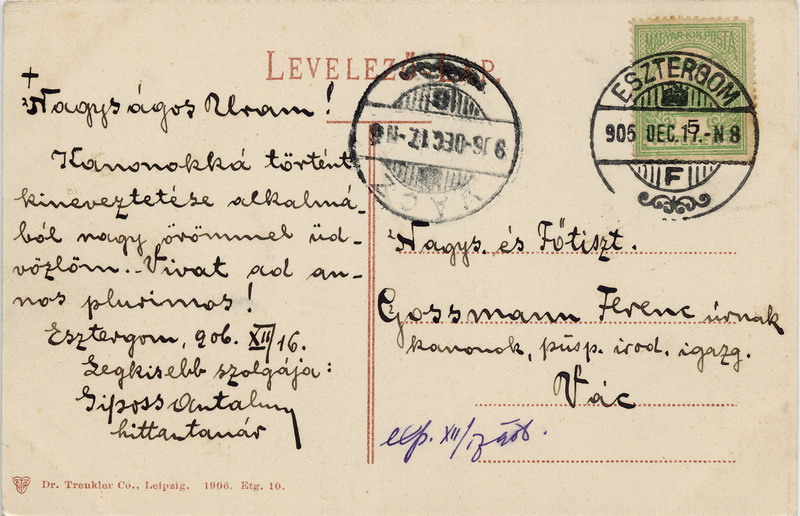 LEVELEZŐ-LAP.
MAGYAR KIR. POSTA
5
ESZTERGOM
906 DEC.17.-N 8
F
VÁCZ
906-DEC.17.-N 8
+
Nagyságos Uram!
Kanonokká történt
kineveztetése alkalmá-
ból nagy örömmel üd-
vözlöm. Vivat ad an-
nos plurimos!
Esztergom, 906. XII/16.
Legkisebb szolgája:
Giposs Antal
hittantanár
Nagys. és Főtiszt.
Gossmann Ferenc úrnak
kanonok, püsp. irod. igazg.
Vác
exp. XII/
Dr. Trenkler Co., Leipzig. 1906. Etg. 10.